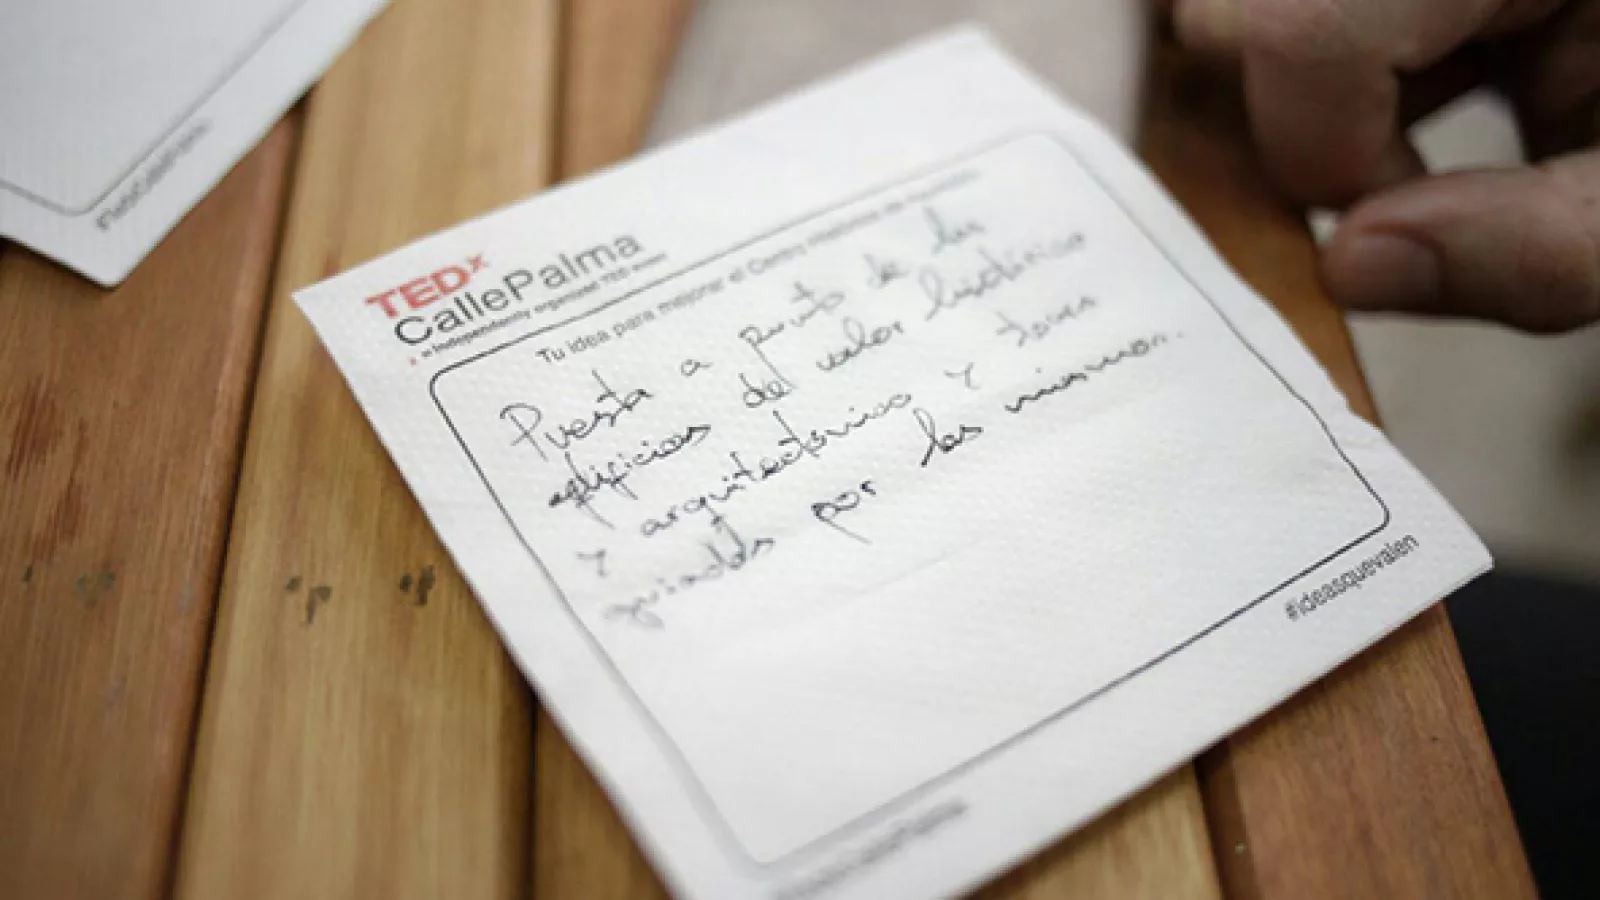 TEDx
CallePalma
x = independently organized TED event
Tu idea para mejorar el Centro Histórico de Asunción
Puesta a punto de los
edificios del valor histórico
y arquitectónico y tours
guiados por los mismos.
#ideasquevalen
#TEDxCallePalma
#TEDxCallePalma